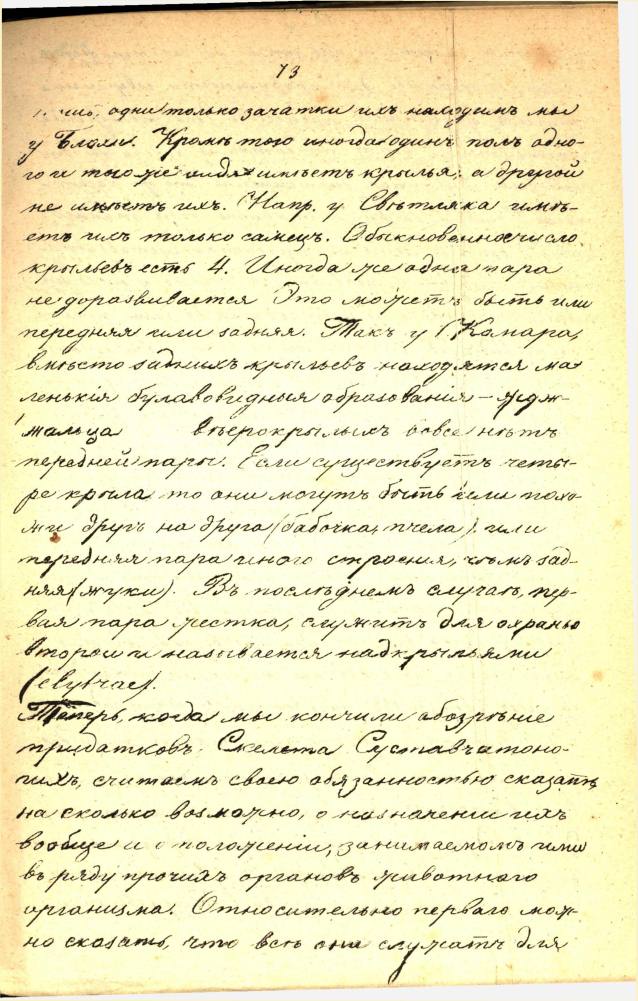 73
одни только зачатки ихъ находимъ мы
у Блохи. Кромѣ того иногда одинъ полъ одно-
го и того же вида имѣетъ крылья, а другой
не имѣетъ ихъ. Напр. у Свѣтляка имѣ-
етъ ихъ только самецъ. Обыкновенное число
крыльевъ есть 4. Иногда же одна пара
недоразвивается Это можетъ быть или
передняя или задняя. Такъ у Комара,
вмѣсто заднихъ крыльевъ находятся ма-
ленькія булавовидныя образованія – жуж-
жальца вѣерокрылыхъ вовсе нѣтъ
передней пары. Если существуетъ четы-
ре крыла то они могутъ быть или похо-
жи другъ на друга (бабочка, пчела) или
передняя пара иного строенія, чѣмъ зад-
няя (жуки). Въ послѣднемъ случаѣ, пер-
вая пара жестка, служитъ для охраны
второй и называется надкрыльями
Теперь, когда мы кончили обозрѣніе
придатковъ Скелета Суставчатоно-
гихъ, считаемъ своею обязанностью сказать,
на сколько возможно, о назначеніи ихъ
вообще и о положеніи, занимаемомъ ими
въ ряду прочихъ органовъ животнаго
организма. Относительно перваго мож-
но сказать, что всѣ они служатъ для